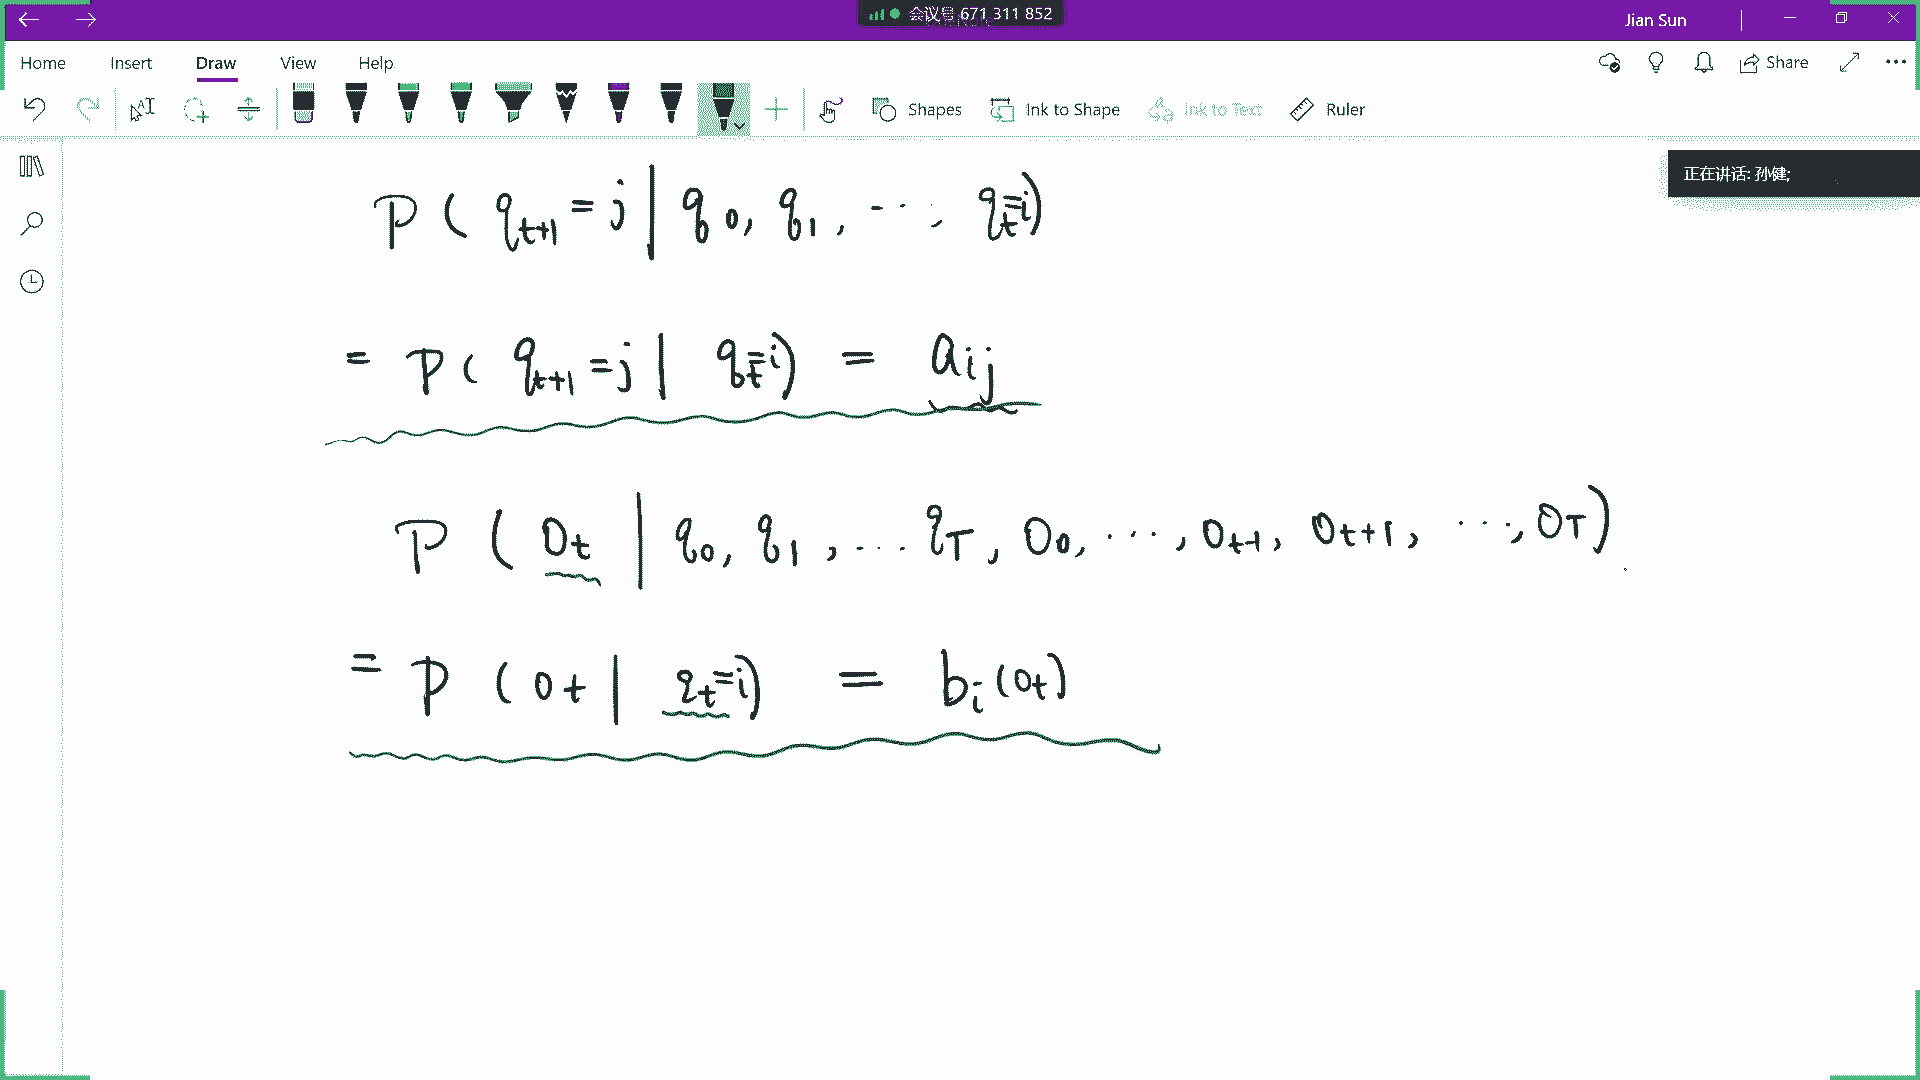 会议号 671 311 852
Jian Sun
Home Insert Draw View Help
Share
Shapes Ink to Shape Ink to Text Ruler
正在讲话: 孙健;
P ( q_{t+1} = j | q_0, q_1, ..., q_t=i)
= P ( q_{t+1} = j | q_t=i) = a_{ij}
P ( O_t | q_0, q_1, ... q_T, O_0, ..., O_{t-1}, O_{t+1}, ..., O_T)
= P ( O_t | q_t=i) = b_i(O_t)